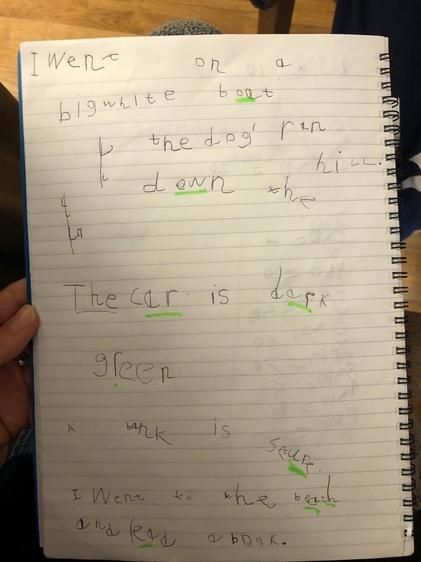 I Went on a
big white boat.
the dog ran
down the hill.
The car is dark
green.
A bank is secure.
I Went to the beach
and read a book.